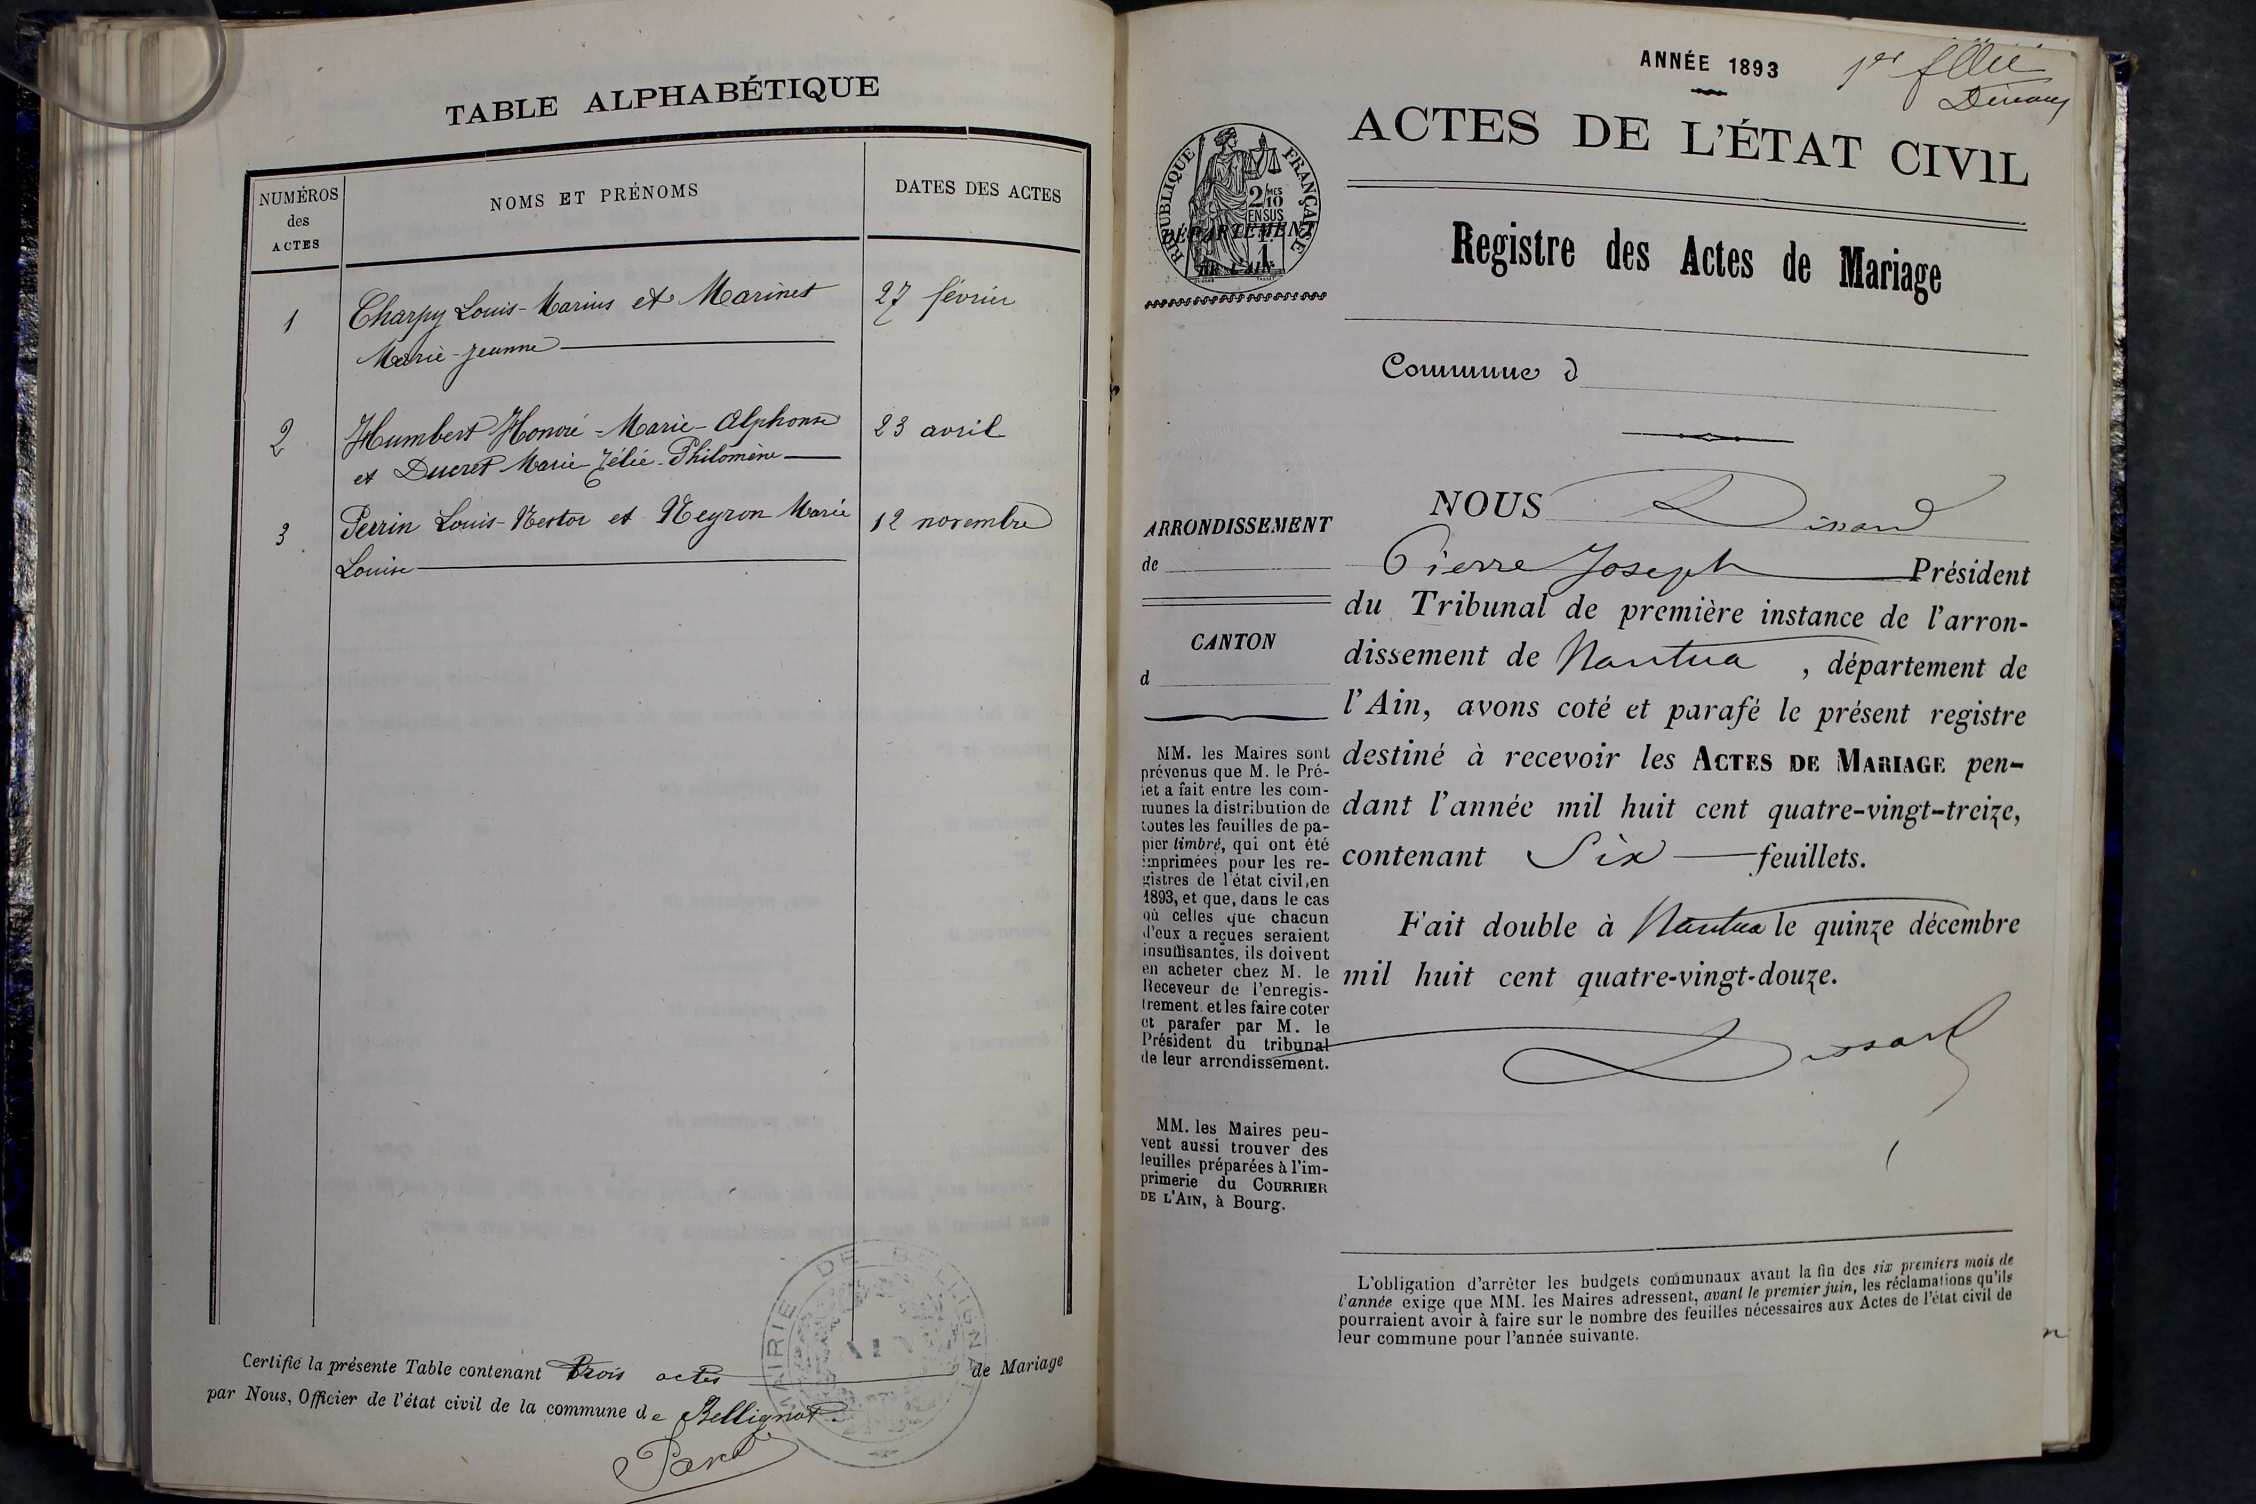 TABLE ALPHABÉTIQUE
NUMÉROS
des
ACTES
NOMS ET PRÉNOMS
DATES DES ACTES
1
Charpy Louis-Marius et Marinet
27 février
Marie-Jeanne
2
Humbert Honoré-Marie-Alphonse
23 avril
et Ducret Marie-Zélie-Philomène
3
Perrin Louis-Nestor et Neyron Marie
12 novembre
Louise
Certifié la présente Table contenant trois actes de Mariage
par Nous, Officier de l'état civil de la commune de Bellignat.
MAIRIE DE BELLIGNAT
AIN
ANNÉE 1893
1er
ACTES DE L'ÉTAT CIVIL
RÉPUBLIQUE FRANÇAISE
2/10 MES
EN SUS
DÉPARTEMENT
DE L'AIN
Registre des Actes de Mariage
Commune d
ARRONDISSEMENT
de
CANTON
d
MM. les Maires sont
prévenus que M. le Pré-
fet a fait entre les com-
munes la distribution de
toutes les feuilles de pa-
pier timbré, qui ont été
imprimées pour les re-
gistres de l'état civil, en
1893, et que, dans le cas
où celles que chacun
d'eux a reçues seraient
insuffisantes, ils doivent
en acheter chez M. le
Receveur de l'enregis-
trement et les faire coter
et parafer par M. le
Président du tribunal
de leur arrondissement.
MM. les Maires peu-
vent aussi trouver des
feuilles préparées à l'im-
primerie du COURRIER
DE L'AIN, à Bourg.
NOUS
Pierre Joseph Président
du Tribunal de première instance de l'arron-
dissement de Nantua, département de
l'Ain, avons coté et parafé le présent registre
destiné à recevoir les ACTES DE MARIAGE pen-
dant l'année mil huit cent quatre-vingt-treize,
contenant Six feuillets.
Fait double à Nantua le quinze décembre
mil huit cent quatre-vingt-douze.
L'obligation d'arrêter les budgets communaux avant la fin des six premiers mois de
l'année exige que MM. les Maires adressent, avant le premier juin, les réclamations qu'ils
pourraient avoir à faire sur le nombre des feuilles nécessaires aux Actes de l'état civil de
leur commune pour l'année suivante.